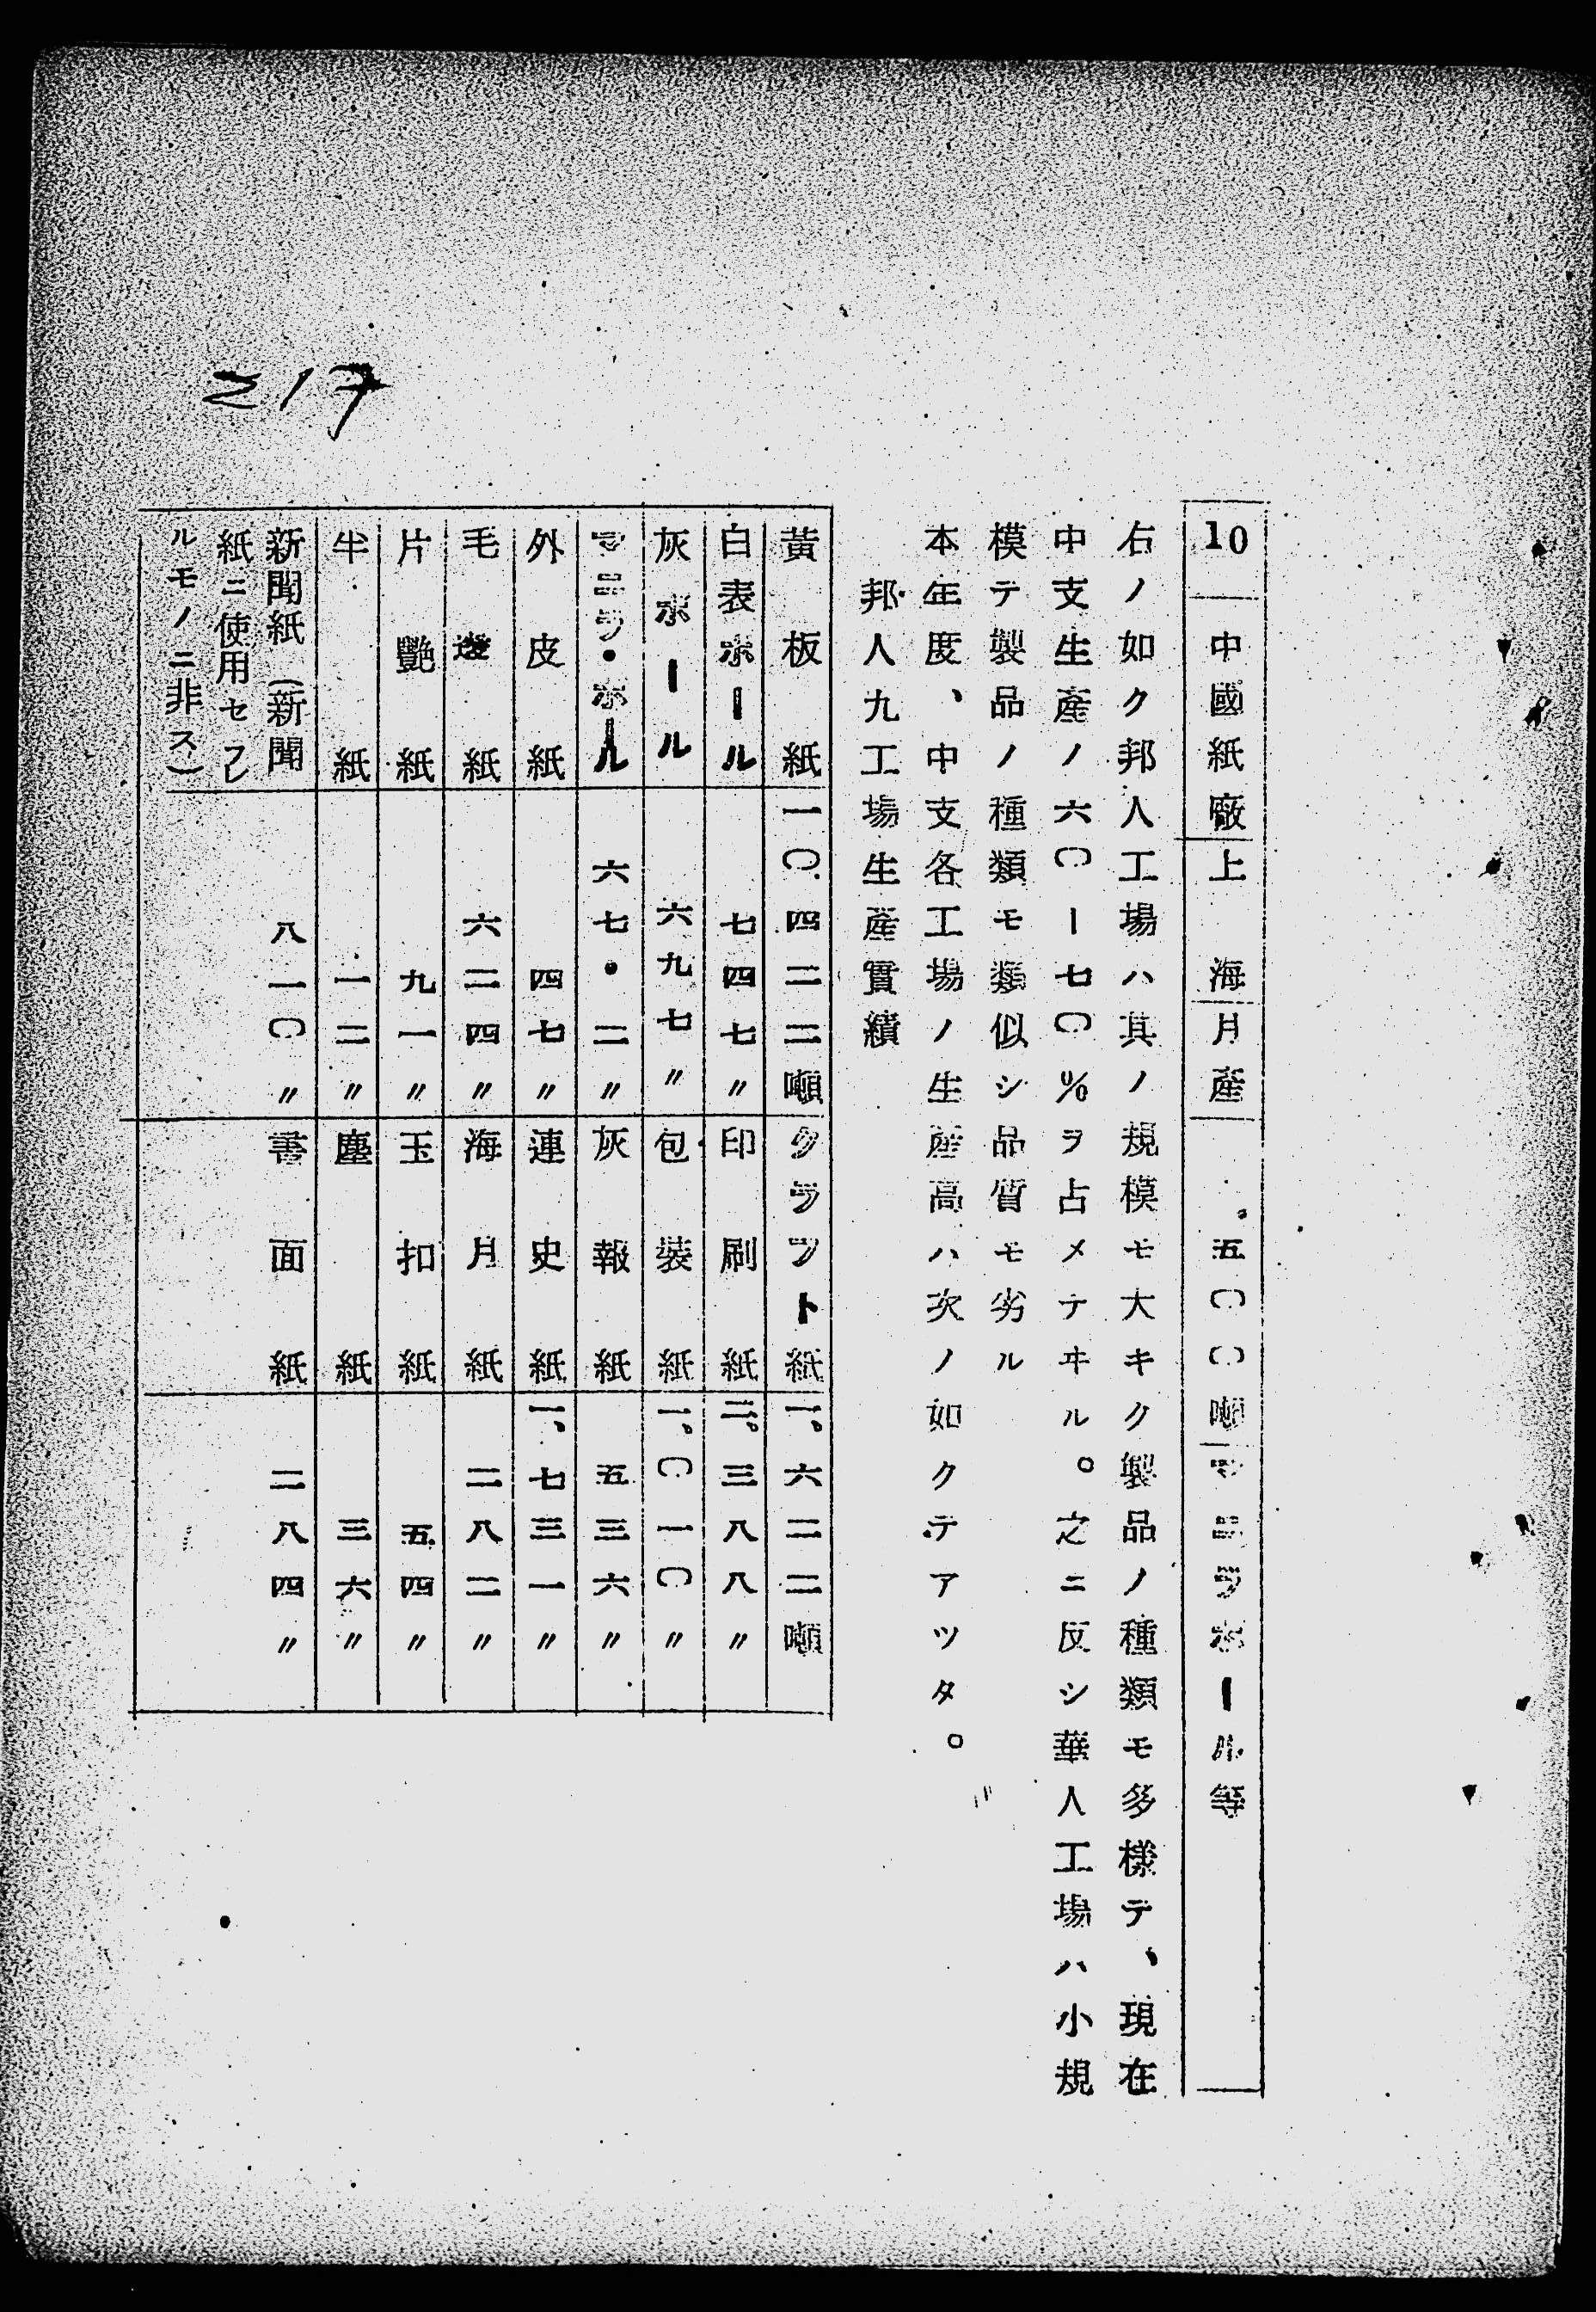 217
10 中國紙廠 上海 月産 五〇〇噸 マニラボール等
右ノ如ク邦人工場ハ其ノ規模モ大キク製品ノ種類モ多樣テ、現在
中支生産ノ六〇ー七〇%ヲ占メテヰル。之ニ反シ華人工場ハ小規
模テ製品ノ種類モ類似シ品質モ劣ル
本年度、中支各工場ノ生産高ハ次ノ如クテアツタ。
邦人九工場生産實績
黃板紙 一〇.四二二噸 クラフト紙 一。六二二噸
白表ボール 七四七〃 印刷紙 二。三八八〃
灰ボール 六九七〃 包裝紙 一。〇一〇〃
マニラ・ボール 六七・二〃 灰報紙 五三六〃
外皮紙 四七〃 連史紙 一、七三一〃
毛邊紙 六二四〃 海月紙 二八二〃
片艷紙 九一〃 玉扣紙 五四〃
半紙 一二〃 塵紙 三六〃
新聞紙(新聞 八一〇〃 書面紙 二八四〃
紙ニ使用セラレ
ルモノニ非ス)